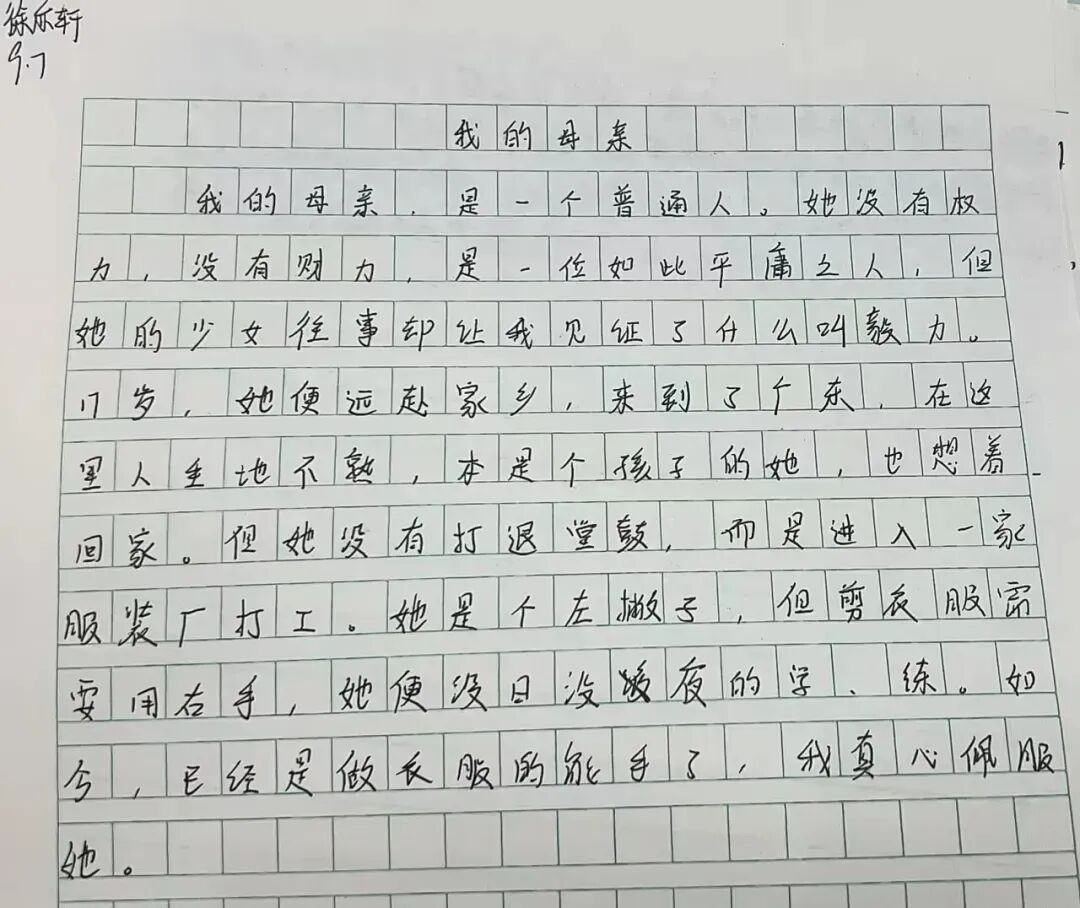 徐乐轩
9.7
我的母亲
我的母亲，是一个普通人。她没有权
力，没有财力，是一位如此平庸之人，但
她的少女往事却让我见证了什么叫毅力。
17岁，她便远赴家乡，来到了广东，在这
里人生地不熟，本是个孩子的她，也想着
回家。但她没有打退堂鼓，而是进入一家
服装厂打工。她是个左撇子，但剪衣服需
要用右手，她便没日没夜的学、练。如
今，已经是做衣服的能手了，我真心佩服
她。